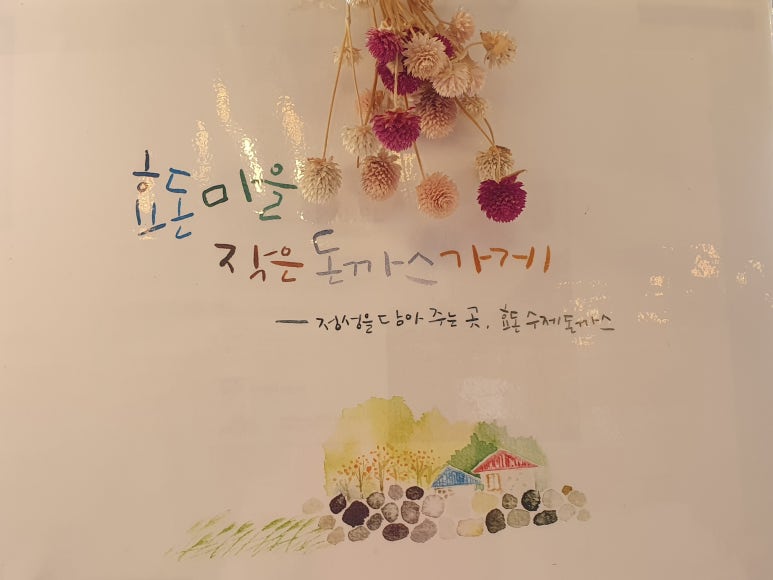 효돈마을
작은돈까스가게
— 정성을 담아 주는 곳, 효돈 수제돈까스